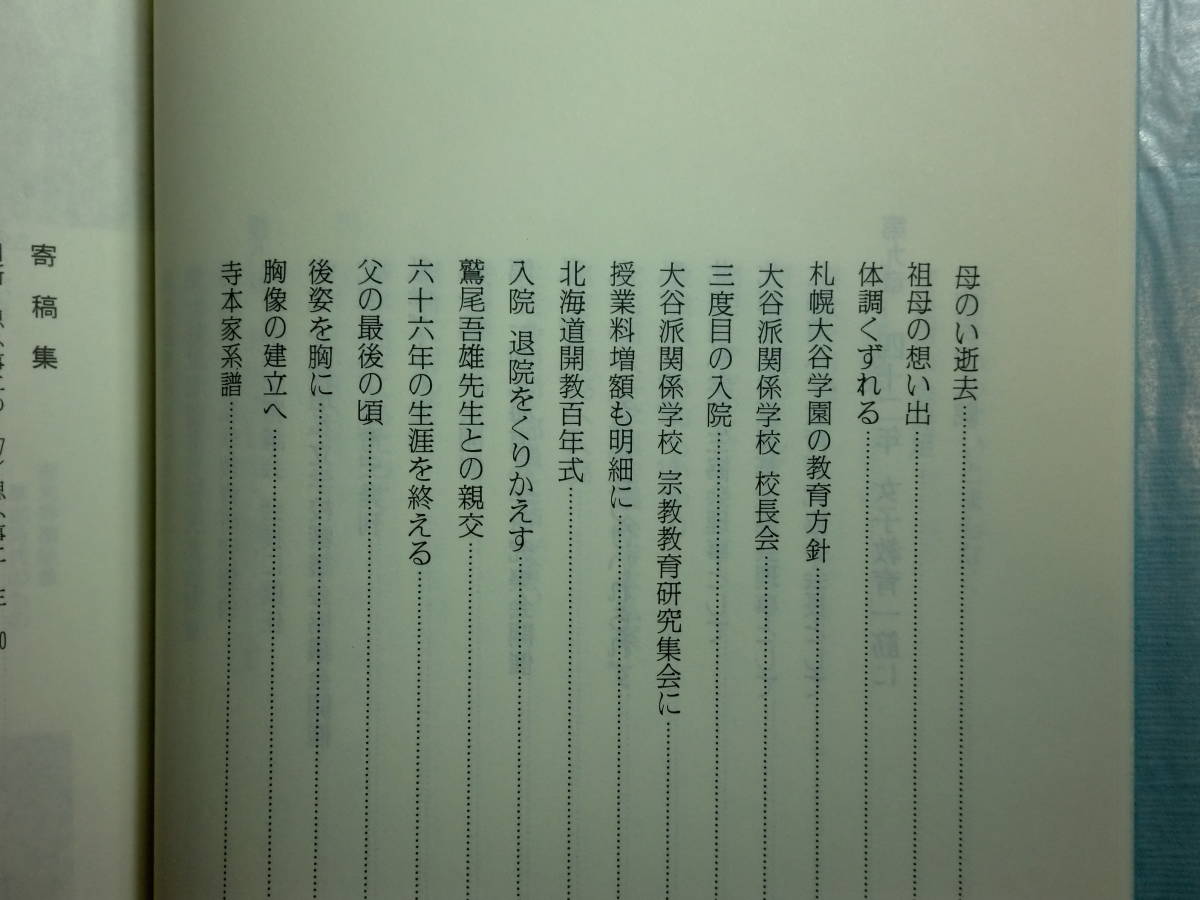 母のい逝去
祖母の想い出
体調くずれる
札幌大谷学園の教育方針
大谷派関係学校 校長会
三度目の入院
大谷派関係学校 宗教教育研究集会に
授業料増額も明細に
北海道開教百年式
入院 退院をくりかえす
鷲尾吾雄先生との親交
六十六年の生涯を終える
父の最後の頃
後姿を胸に
胸像の建立へ
寺本家系譜
寄稿集